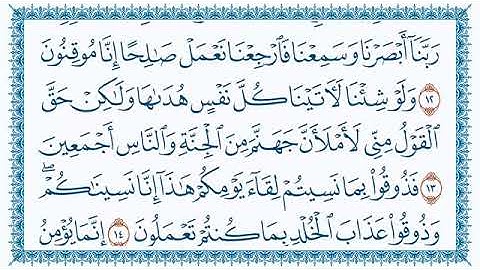 رَبَّنَآ أَبْصَرْنَا وَسَمِعْنَا فَٱرْجِعْنَا نَعْمَلْ صَٰلِحًا إِنَّا مُوقِنُونَ
١٢ وَلَوْ شِئْنَا لَءَاتَيْنَا كُلَّ نَفْسٍ هُدَىٰهَا وَلَٰكِنْ حَقَّ
ٱلْقَوْلُ مِنِّى لَأَمْلَأَنَّ جَهَنَّمَ مِنَ ٱلْجِنَّةِ وَٱلنَّاسِ أَجْمَعِينَ
١٣ فَذُوقُوا۟ بِمَا نَسِيتُمْ لِقَآءَ يَوْمِكُمْ هَٰذَآ إِنَّا نَسِينَٰكُمْ ۖ
وَذُوقُوا۟ عَذَابَ ٱلْخُلْدِ بِمَا كُنتُمْ تَعْمَلُونَ ١٤ إِنَّمَا يُؤْمِنُ